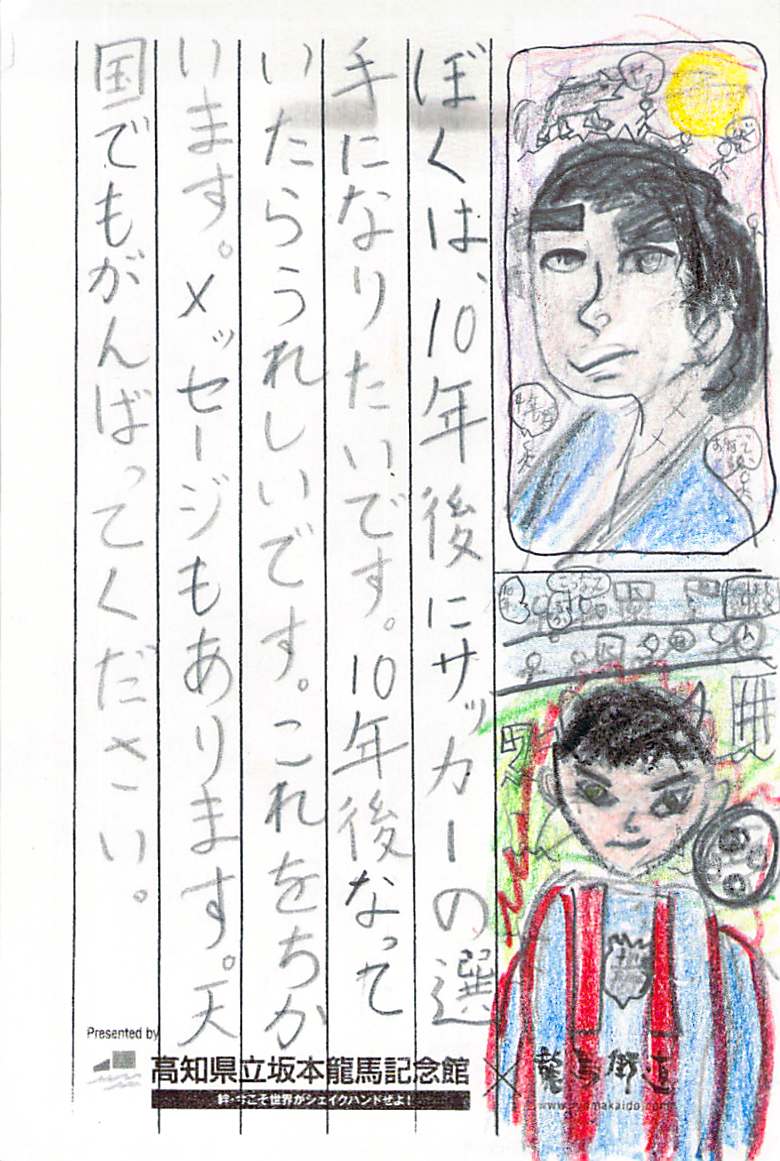 ぼくは、10年後にサッカーの選
手になりたいです。10年後なって
いたらうれしいです。これをちか
います。メッセージもあります。天
国でもがんばってください。
Presented by
高知県立坂本龍馬記念館 × 龍馬街道
絆・今こそ世界がシェイクハンドせよ!
www.ryomakaido.com